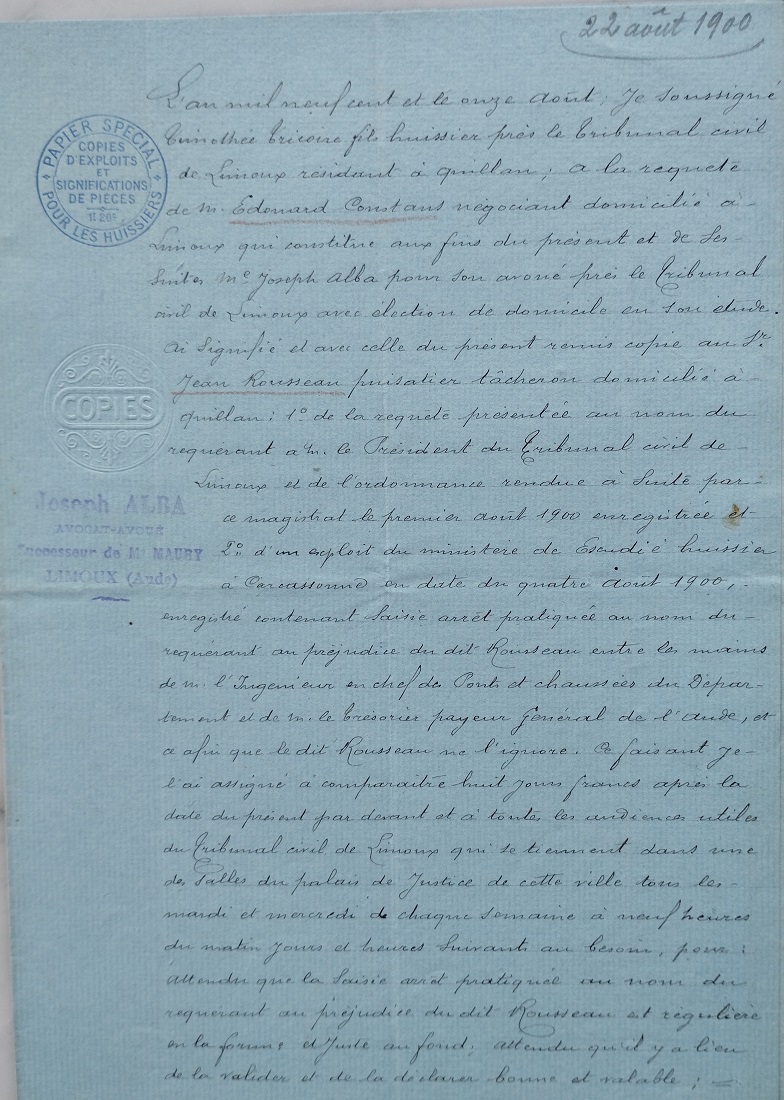 22 août 1900
L'an mil neuf cent et le onze août, Je soussigné
Timothée Tricoire fils huissier près le Tribunal civil
de Limoux résidant à Quillan; a la requête
de M. Edouard Constans négociant domicilié à
Limoux qui constitue aux fins du présent et de ses
suites Me Joseph Alba pour son avoué près le Tribunal
civil de Limoux avec élection de domicile en son étude.
Ai signifié et avec celle du présent remis copie au Sr.
Jean Rousseau puisatier tâcheron domicilié à
Quillan: 1º de la requête présentée au nom du
requérant a M. le Président du Tribunal civil de
Limoux et de l'ordonnance rendue à suite par
ce magistrat le premier août 1900 enregistrée et
2º d'un exploit du ministère de Escudié huissier
à Carcassonne en date du quatre août 1900,
enregistré contenant saisie arrêt pratiquée au nom du
requérant au préjudice du dit Rousseau entre les mains
de M. l'Ingénieur en chef des Ponts et chaussées du Dépar-
tement et de M. le Trésorier payeur Général de l'Aude, et
a afin que le dit Rousseau ne l'ignore. Ce faisant Je
l'ai assigné à comparaître huit Jours francs après la
date du présent par devant et à toutes les audiences utiles
du Tribunal civil de Limoux qui se tiennent dans une
des Salles du palais de Justice de cette ville tous les
mardi et mercredi de chaque semaine à neuf heures
du matin Jours et heures suivants au besoin, pour:
Attendu que la saisie arrêt pratiquée au nom du
requérant au préjudice du dit Rousseau est régulière
en la forme et Juste au fond; attendu qu'il y a lieu
de la valider et de la déclarer bonne et valable;
PAPIER SPECIAL
POUR LES HUISSIERS
COPIES
D'EXPLOITS
ET
SIGNIFICATIONS
DE PIÈCES
COPIES
Joseph ALBA
AVOCAT-AVOUÉ
Successeur de Me MAURY
LIMOUX (Aude)